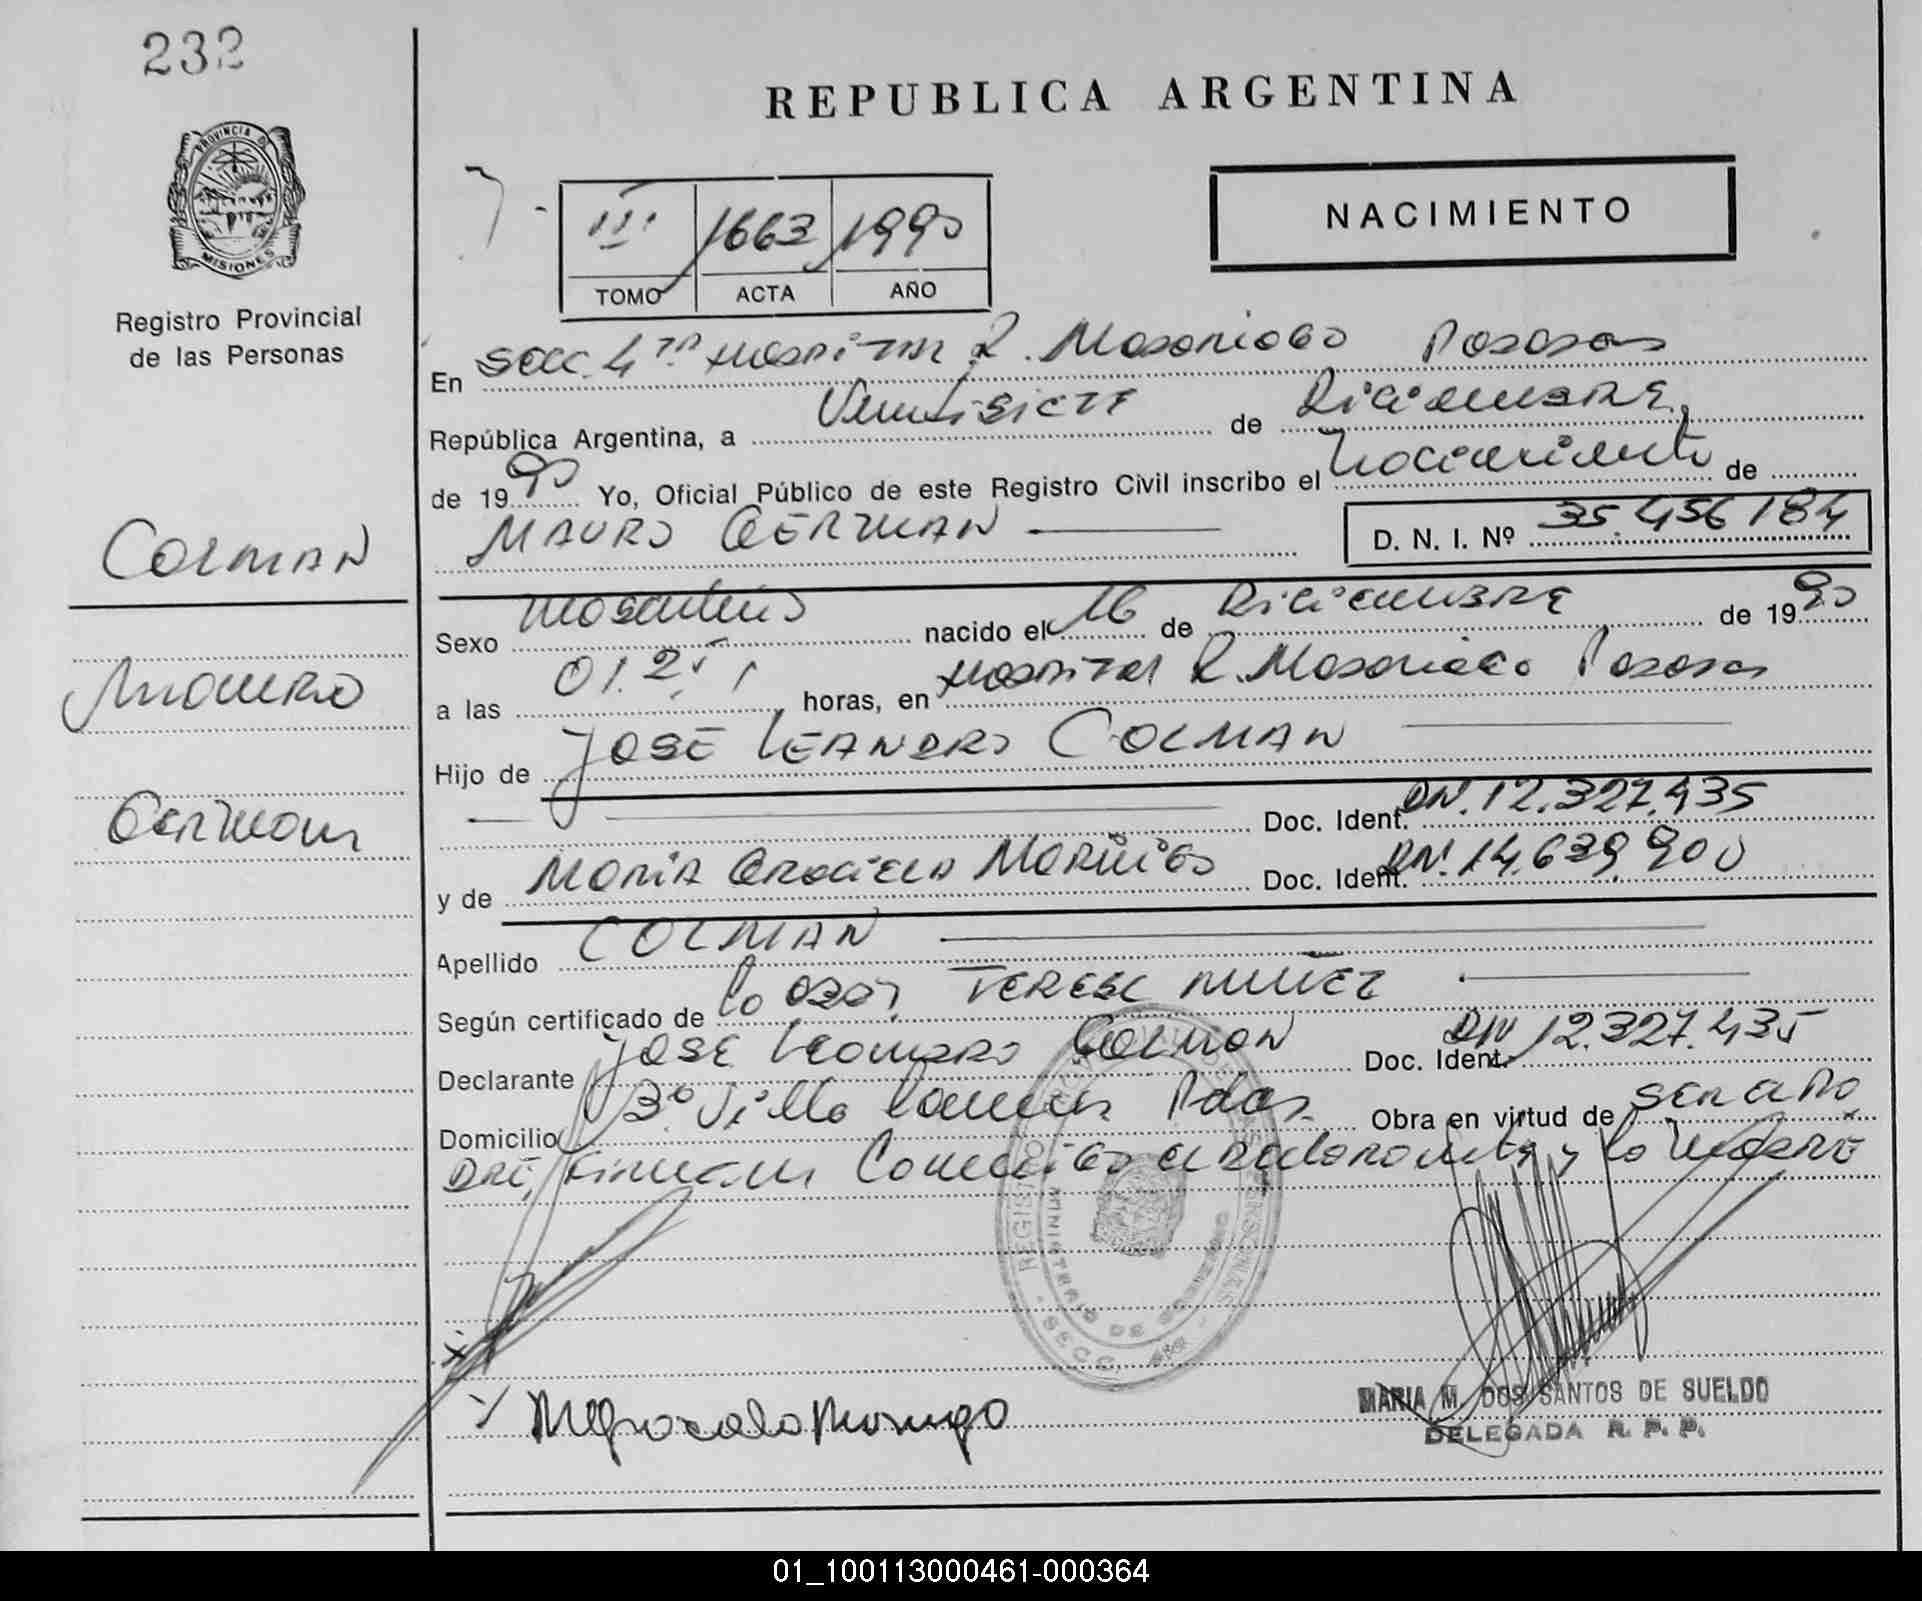 232
REPUBLICA ARGENTINA
PROVINCIA DE
MISIONES
Registro Provincial
de las Personas
III 1663 1990
TOMO ACTA AÑO
NACIMIENTO
En Secc. 4ta Hospital R. Madariaga Posadas
República Argentina, a Veintisiete de Diciembre
de 1990 Yo, Oficial Público de este Registro Civil inscribo el Nacimiento de
MAURO GERMAN D. N. I. Nº 35.456.184
COLMAN
Mauro
German
Sexo Masculino nacido el 16 de Diciembre de 1990
a las 01.25 horas, en Hospital R. Madariaga Posadas
Hijo de JOSE LEANDRO COLMAN
Doc. Ident. DNI. 12.327.435
y de Maria Graciela Moriñigo Doc. Ident. DNI. 14.639.900
Apellido COLMAN
Según certificado de la Obst. Teresa Nuñez
Declarante Jose Leandro Colman Doc. Ident. DNI 12.327.435
Domicilio Bº Villa Pdas. Obra en virtud de ser el Pa
dre, Firman Conmigo el declarante y la Madre
REGISTRO PROVINCIAL DE LAS PERSONAS
MINISTERIO DE GOBIERNO
SECC.
MGracielaMorinigo
MARIA M. DOS SANTOS DE SUELDO
DELEGADA R. P. P.
01_100113000461-000364